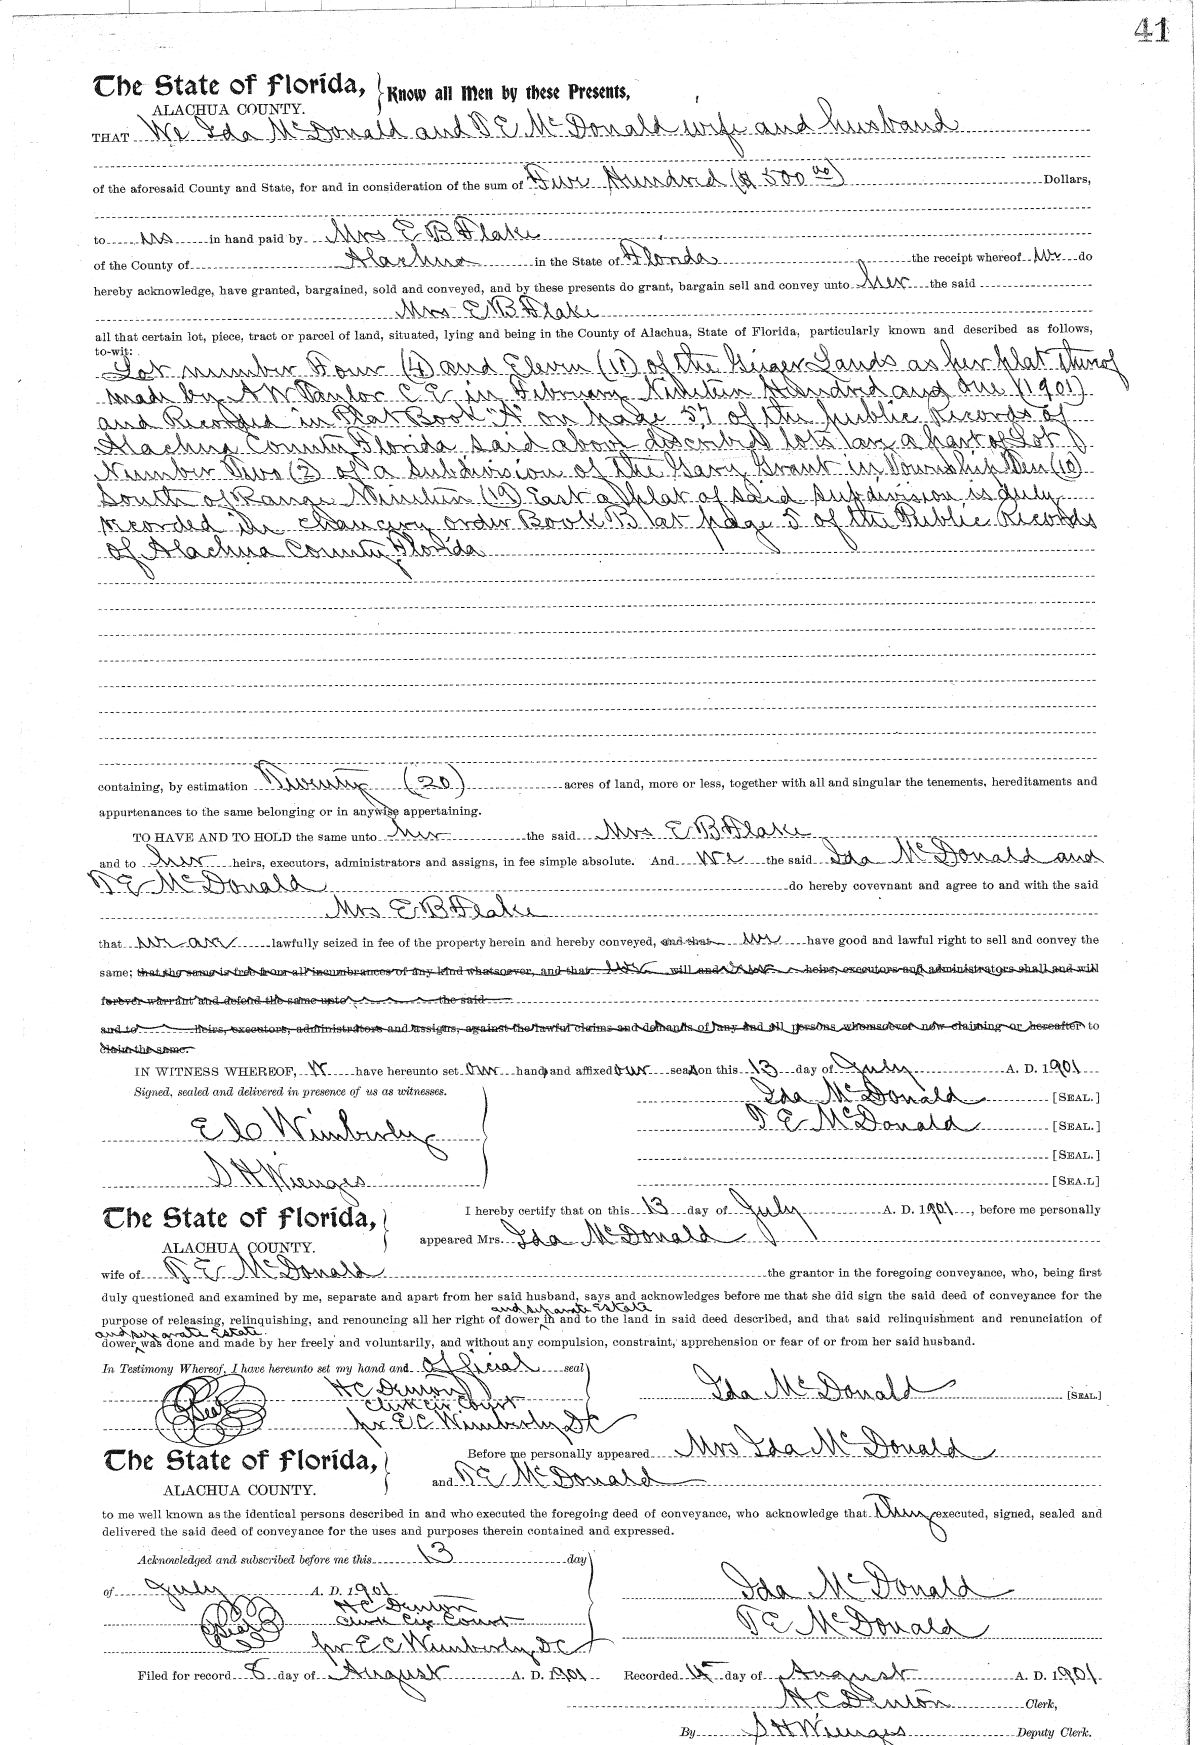 41
The State of Florida, } Know all Men by these Presents,
ALACHUA COUNTY.
THAT We Ida McDonald and T E McDonald wife and husband
of the aforesaid County and State, for and in consideration of the sum of Five Hundred ($500 00) Dollars,
to us in hand paid by Mrs E B Flake
of the County of Alachua in the State of Florida the receipt whereof we do
hereby acknowledge, have granted, bargained, sold and conveyed, and by these presents do grant, bargain sell and convey unto her the said
Mrs E B Flake
all that certain lot, piece, tract or parcel of land, situated, lying and being in the County of Alachua, State of Florida, particularly known and described as follows,
to-wit:
Lot number Four (4) and Eleven (11) of the Geiger Lands as per plat thereof
made by A W Taylor C. E. in February Nineteen Hundred and One (1901)
and Recorded in Plat Book "A" on page 57 of the public Records of
Alachua County Florida said above discribed lots are a part of Lot
Number Two (2) of a subdivision of the Gary Grant in Township Ten (10)
South of Range Nineteen (19) East a plat of said subdivision is duly
recorded in chancery order Book B at page 5 of the Public Records
of Alachua County Florida
containing, by estimation Twenty (20) acres of land, more or less, together with all and singular the tenements, hereditaments and
appurtenances to the same belonging or in anywise appertaining.
TO HAVE AND TO HOLD the same unto her the said Mrs E B Flake
and to her heirs, executors, administrators and assigns, in fee simple absolute. And we the said Ida McDonald and
T E McDonald do hereby covevnant and agree to and with the said
Mrs E B Flake
that we are lawfully seized in fee of the property herein and hereby conveyed, and that we have good and lawful right to sell and convey the
same; that the same is free from all incumbrances of any kind whatsoever, and that will and heirs, executors and administrators shall and will
forever warrant and defend the same unto the said
and to heirs, executors, administrators and assigns, against the lawful claims and demands of any and all persons whomsoever now claiming or hereafter to
claim the same.
IN WITNESS WHEREOF, we have hereunto set our hand and affixed our seal on this 13 day of July A. D. 1901
Signed, sealed and delivered in presence of us as witnesses.
Ida McDonald [SEAL.]
T E McDonald [SEAL.]
E C Wimberly
[SEAL.]
S H Wienges
[SEA.L]
The State of Florida, } I hereby certify that on this 13 day of July A. D. 1901, before me personally
ALACHUA COUNTY. appeared Mrs. Ida McDonald
wife of T E McDonald the grantor in the foregoing conveyance, who, being first
duly questioned and examined by me, separate and apart from her said husband, says and acknowledges before me that she did sign the said deed of conveyance for the
and separate Estate
purpose of releasing, relinquishing, and renouncing all her right of dower in and to the land in said deed described, and that said relinquishment and renunciation of
and separate Estate
dower was done and made by her freely and voluntarily, and without any compulsion, constraint, apprehension or fear of or from her said husband.
In Testimony Whereof, I have hereunto set my hand and official seal
H C Denton
Ida McDonald [SEAL.]
Seal Clerk Cir Court
pr E C Wimberly D C
The State of Florida, } Before me personally appeared Mrs Ida McDonald
ALACHUA COUNTY. and T E McDonald
to me well known as the identical persons described in and who executed the foregoing deed of conveyance, who acknowledge that They executed, signed, sealed and
delivered the said deed of conveyance for the uses and purposes therein contained and expressed.
Acknowledged and subscribed before me this 13 day
of July A. D. 1901
Ida McDonald
H C Denton
Seal Clerk Cir Court
T E McDonald
pr E C Wimberly D C
Filed for record 8 day of August A. D. 1901 Recorded 15 day of August A. D. 1901
H C Denton Clerk,
By S H Wienges Deputy Clerk.